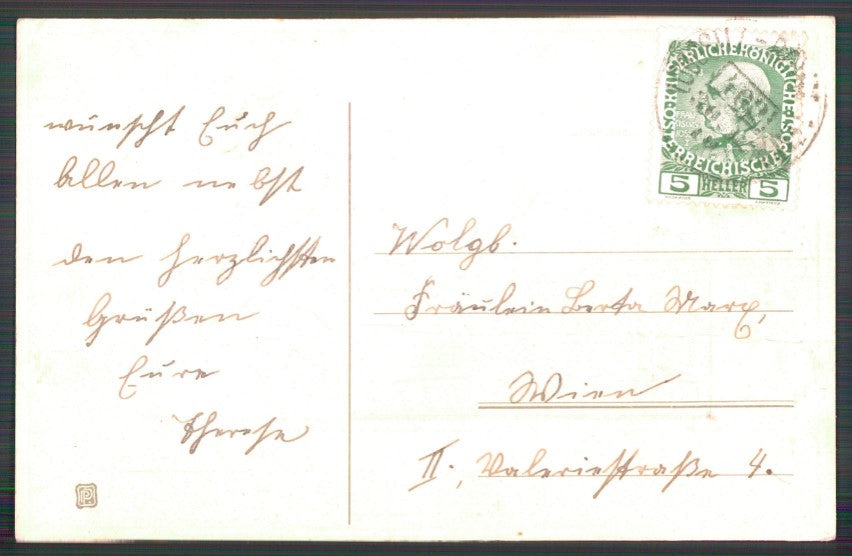 wünscht Euch
Allen nebst
den herzlichsten
Grüßen
Eure
Therese
KAISERLICHE KÖNIGLICHE
ÖSTERREICHISCHE POST
5 HELLER 5
Wolgb.
Fräulein Berta Marx,
Wien
II., Valeriestraße 4.